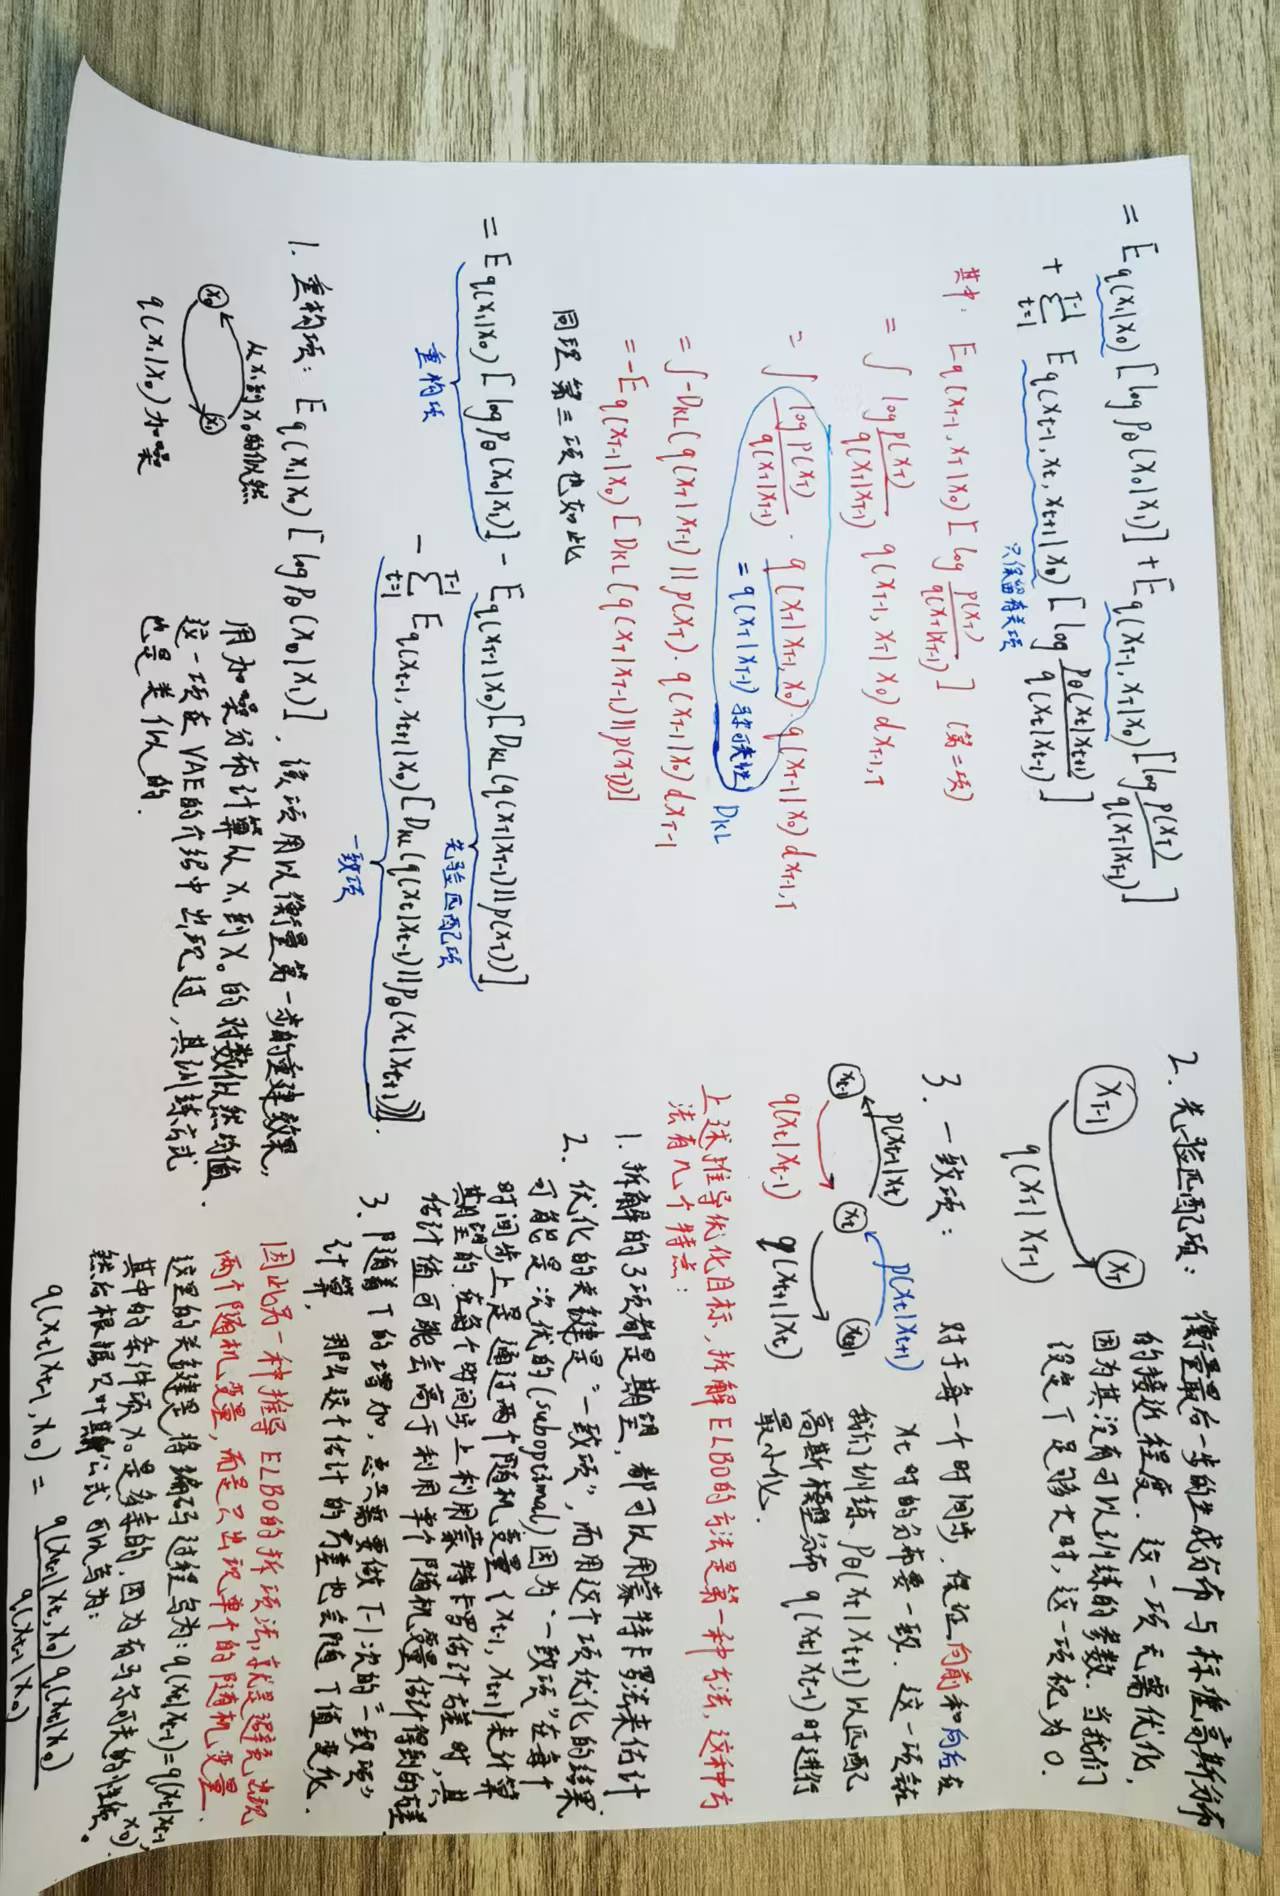 = E_{q(x₁|x₀)}[log p_θ(x₀|x₁)] + E_{q(x_{T-1}, x_T|x₀)}[log p(x_T)/q(x_T|x_{T-1})]
+ Σ_{t=1}^{T-1} E_{q(x_{t-1}, x_t, x_{t+1}|x₀)}[log p_θ(x_t|x_{t+1})/q(x_t|x_{t-1})]
只保留有关项
其中: E_{q(x_{T-1}, x_T|x₀)}[log p(x_T)/q(x_T|x_{T-1})] (第二项)
= ∫ log p(x_T)/q(x_T|x_{T-1}) q(x_{T-1}, x_T|x₀) dx_{T-1,T}
= ∫ log p(x_T)/q(x_T|x_{T-1}) · q(x_T|x_{T-1}, x₀) · q(x_{T-1}|x₀) dx_{T-1,T}
= q(x_T|x_{T-1}) 马尔可夫性
D_KL
= ∫ -D_KL(q(x_T|x_{T-1})||p(x_T)) · q(x_{T-1}|x₀) dx_{T-1}
= -E_{q(x_{T-1}|x₀)}[D_KL(q(x_T|x_{T-1})||p(x_T))]
同理第三项也如此
= E_{q(x₁|x₀)}[log p_θ(x₀|x₁)] - E_{q(x_{T-1}|x₀)}[D_KL(q(x_T|x_{T-1})||p(x_T))]
重构项
先验匹配项
- Σ_{t=1}^{T-1} E_{q(x_{t-1}, x_{t+1}|x₀)}[D_KL(q(x_t|x_{t-1})||p_θ(x_t|x_{t+1}))].
一致项
1. 重构项: E_{q(x₁|x₀)}[log p_θ(x₀|x₁)], 该项用以衡量第一步的重建效果,
从x₁到x₀的似然
x₀
x₁
q(x₁|x₀)加噪
用加噪分布计算从x₁到x₀的对数似然均值.
这一项在VAE的介绍中出现过, 其训练方式
也是类似的.
2. 先验匹配项:
x_{T-1}
x_T
q(x_T|x_{T-1})
衡量最后一步的生成分布与标准高斯分布
的接近程度. 这一项无需优化,
因为其没有可以训练的参数. 当我们
设定T足够大时, 这一项视为0.
3. 一致项:
x_{t-1}
p(x_{t-1}|x_t)
x_t
p(x_t|x_{t+1})
x_{t+1}
q(x_t|x_{t-1})
q(x_{t+1}|x_t)
对于每一个时间步, 保证向前和向后在
x_t时的分布要一致. 这一项
我们训练p_θ(x_t|x_{t+1})以匹配
高斯模型分布q(x_t|x_{t-1})时进行
最小化.
上述推导优化目标, 拆解ELBO的方法是第一种方法, 这种方
法有几个特点:
1. 拆解的3项都是期望, 都可以用蒙特卡罗法来估计
2. 优化的关键是“一致项”, 而用这个项优化的结果
可能是次优的(suboptimal)因为“一致项”在每个
时间步上是通过两个随机变量{x_{t-1}, x_{t+1}}来计算
期望的. 在每个时间步上利用蒙特卡罗估计方差时, 其
估计值可能会高于利用单个随机变量估计得到的方差
3. 随着T的增加, 总共需要做T-1次的“一致项”
计算, 那么这个估计的方差也会随T值变化.
因此另一种推导ELBO的拆项法, 就是避免出现
两个随机变量, 而是只出现单个的随机变量.
这里的关键是将编码过程写为: q(x_t|x_{t-1})=q(x_t|x_{t-1}, x₀)
其中的条件项x₀是多余的, 因为有马尔可夫的性质。
然后根据贝叶斯公式可以写为:
q(x_t|x_{t-1}, x₀) = q(x_{t-1}|x_t, x₀)q(x_t|x₀)/q(x_{t-1}|x₀)